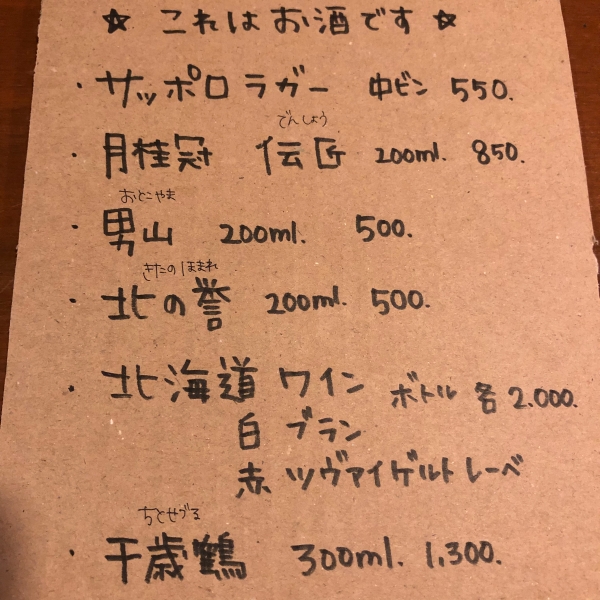 ☆ これはお酒です ☆
・サッポロラガー 中ビン 550.
でんしょう
・月桂冠 伝匠 200ml. 850.
おとこやま
・男山 200ml. 500.
きたのほまれ
・北の誉 200ml. 500.
・北海道ワイン ボトル 各2.000.
白 ブラン
赤 ツヴァイゲルトレーベ
ちとせづる
・千歳鶴 300ml. 1,300.